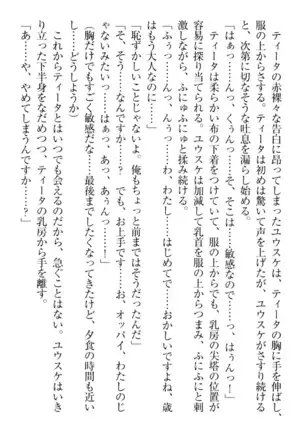 ティータの赤裸々な告白に昂ってしまったユウスケは、ティータの胸に手を伸ばし、
服の上からさする。ティータは初めは驚いて声を上げたが、ユウスケがさすり続ける
と、次第に切なそうな吐息を漏らし始める。
「はぁっ……んっ、くぅんっ……そ、そこは……敏感なので……っ、はぅんっ！」
　ティータは柔らかい布の下着をつけていて、服の上からでも、乳房の尖塔の位置が
容易に探り当てられる。ユウスケは加減して乳首を服の上からつまみ、ふにふにと刺
激しながら、ふにゅふにゅっと揉み続ける。
「ふぅっ……んっ、んぅっ……わ、わたし……はじめてで……おかしいですよね、歳
はもう大人なのに……」
「恥ずかしいことじゃないよ。俺もちょっと前まではそうだったんだ」
「そ、そう……なんですか……？　でも、お上手です……お、オッパイ、わたしのじ
ゃないみたいっ……はぁっ、あっ、あぁんっ……！」
（胸だけでもすごく敏感だな……最後までしたくなってきたけど、夕食の時間も近い
か……どうしようか）
　これからティータとはいつでも会えるのだから、急ぐことはない。ユウスケはいき
り立った下半身をなだめつつ、ティータの乳房から手を離す。
「あっ……や、やめてしまうんですか……？」